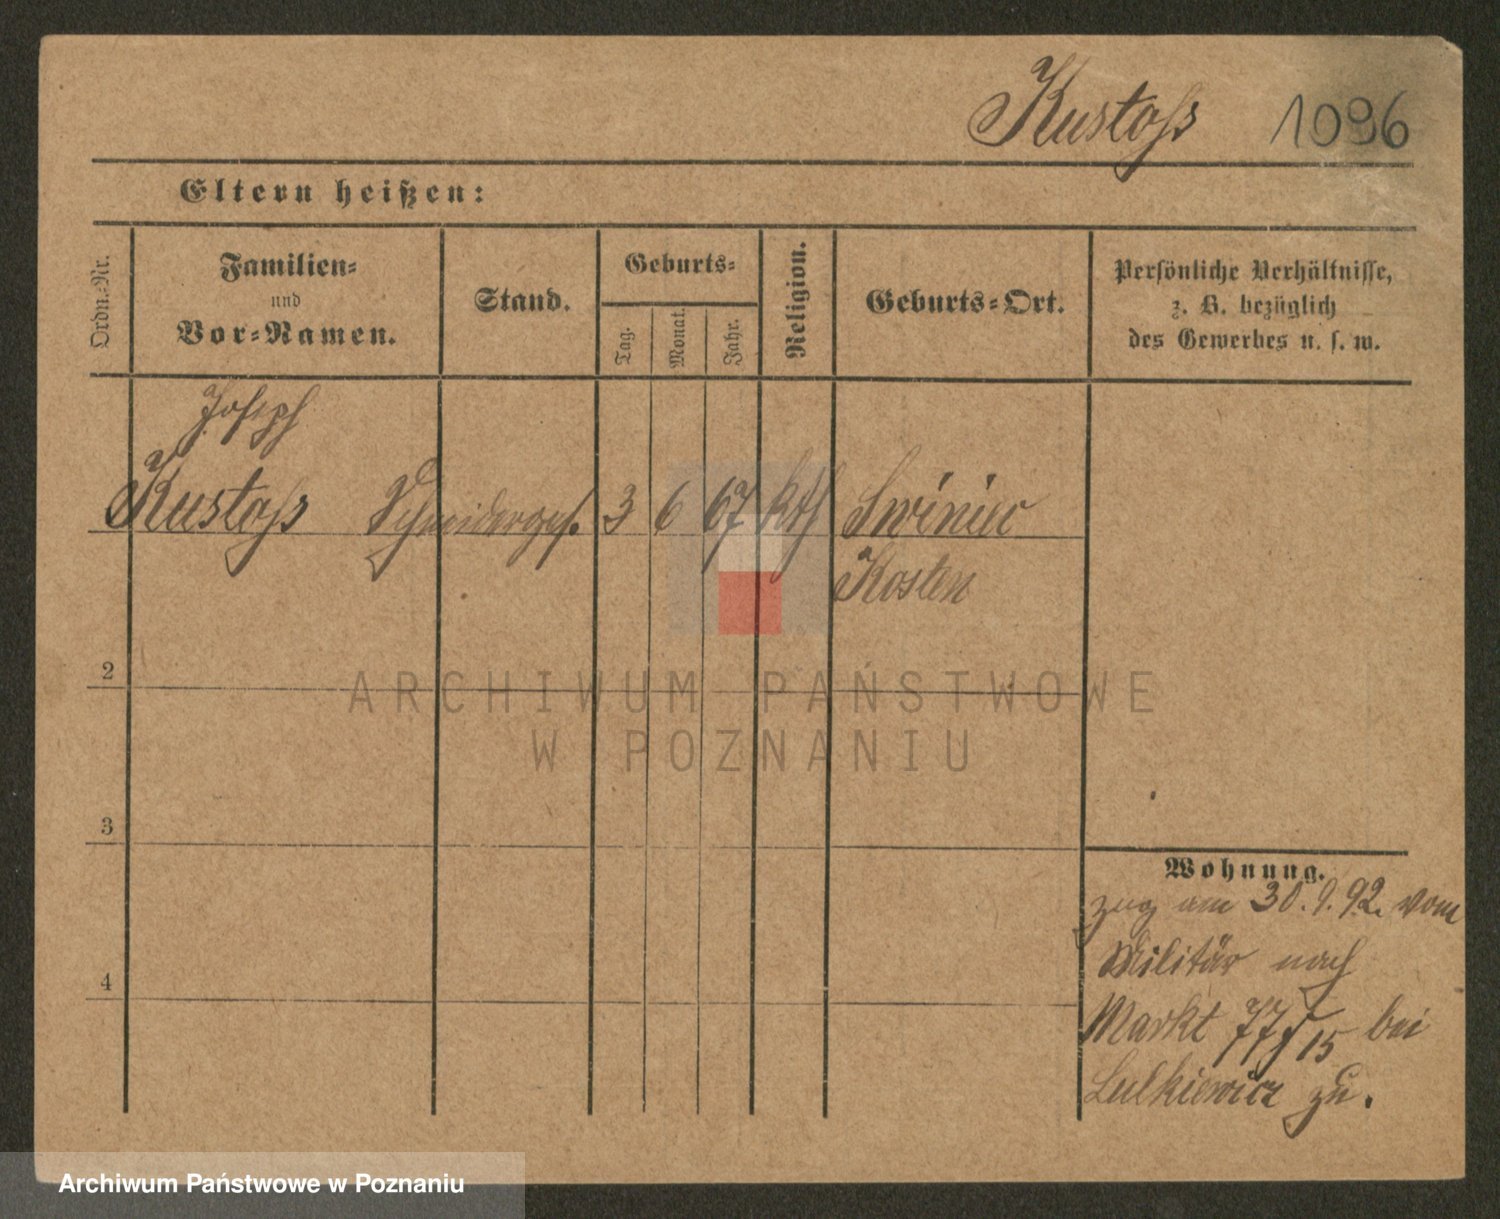 Kustoss 1096
Eltern heißen:
Ordn.-Nr.
Familien-
und
Vor-Namen.
Stand.
Geburts-
Tag.
Monat.
Jahr.
Religion.
Geburts-Ort.
Persönliche Verhältnisse,
z. B. bezüglich
des Gewerbes u. s. w.
Joseph
Kustoss Schneiderges. 3 6 67 kth Swiniec
Kosten
2
3
4
Wohnung.
zog am 30.9.92. vom
Militär nach
Markt 77/15 bei
Lulkiewicz zu.
ARCHIWUM PAŃSTWOWE
W POZNANIU
Archiwum Państwowe w Poznaniu